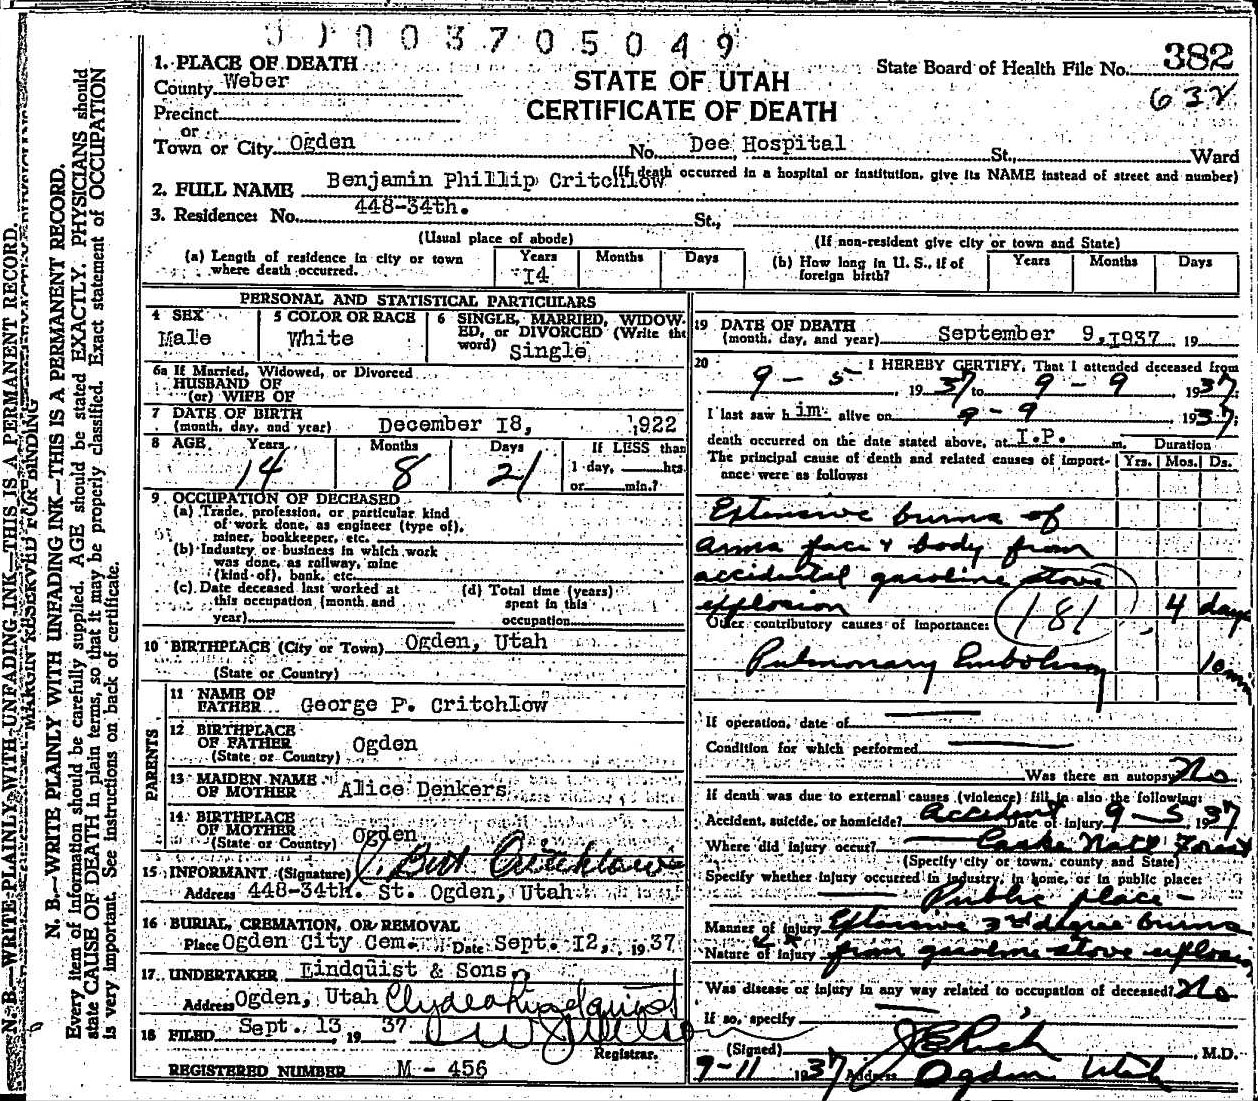 0 0 3 7 0 5 0 4 9
382
632
1. PLACE OF DEATH
State Board of Health File No.
County Weber
STATE OF UTAH
CERTIFICATE OF DEATH
Precinct
or
Town or City Ogden No. Dee Hospital St., Ward
(If death occurred in a hospital or institution, give its NAME instead of street and number)
2. FULL NAME Benjamin Phillip Critchlow
3. Residence: No. 448-34th. St.,
(Usual place of abode) (If non-resident give city or town and State)
(a) Length of residence in city or town where death occurred. Years 14 Months Days
(b) How long in U. S., if of foreign birth? Years Months Days
PERSONAL AND STATISTICAL PARTICULARS
4 SEX Male
5 COLOR OR RACE White
6 SINGLE, MARRIED, WIDOWED, or DIVORCED (Write the word) Single
6a If Married, Widowed, or Divorced
HUSBAND OF
(or) WIFE OF
7 DATE OF BIRTH
(month, day, and year) December 18, 1922
8 AGE Years 14 Months 8 Days 21 If LESS than 1 day, hrs. or min.?
9 OCCUPATION OF DECEASED
(a) Trade, profession, or particular kind
of work done, as engineer (type of),
miner, bookkeeper, etc.
(b) Industry or business in which work
was done, as railway, mine
(kind of), bank, etc.
(c) Date deceased last worked at
this occupation (month and
year)
(d) Total time (years)
spent in this
occupation
10 BIRTHPLACE (City or Town) Ogden, Utah
(State or Country)
PARENTS
11 NAME OF FATHER George P. Critchlow
12 BIRTHPLACE OF FATHER Ogden
(State or Country)
13 MAIDEN NAME OF MOTHER Alice Denkers
14 BIRTHPLACE OF MOTHER Ogden
(State or Country)
15 INFORMANT (Signature) Burt Critchlow
Address 448-34th. St. Ogden, Utah
16 BURIAL, CREMATION, OR REMOVAL
Place Ogden City Cem. Date Sept. 12, 1937
17 UNDERTAKER Lindquist & Sons,
Address Ogden, Utah
18 FILED Sept. 13, 1937
Registrar.
REGISTERED NUMBER M - 456
19 DATE OF DEATH
(month, day, and year) September 9, 1937 19
20 I HEREBY CERTIFY, That I attended deceased from
9 - 5 1937 to 9 - 9 1937;
I last saw him alive on 9 - 9 1937;
death occurred on the date stated above, at 1.P. m. Duration
The principal cause of death and related causes of importance were as follows: Yrs. Mos. Ds.
Extensive burns of
arms face & body from
accidental gasoline stove
explosion 4 days
181
Other contributory causes of importance:
Pulmonary Embolism 10 min
If operation, date of
Condition for which performed
Was there an autopsy No
If death was due to external causes (violence) fill in also the following:
Accident, suicide, or homicide? Accident Date of injury 9 - 5 1937
Where did injury occur? Cache Natl Forest
(Specify city or town, county and State)
Specify whether injury occurred in industry, in home, or in public place:
Public place -
Manner of injury Extensive 3rd degree burns
Nature of injury from gasoline stove explosion
Was disease or injury in any way related to occupation of deceased? No
If so, specify
(Signed) , M.D.
9-11 1937 Address Ogden Utah
N. B.—WRITE PLAINLY WITH UNFADING INK—THIS IS A PERMANENT RECORD.
MARGIN RESERVED FOR BINDING
N. B.—WRITE PLAINLY WITH UNFADING INK—THIS IS A PERMANENT RECORD.
Every item of information should be carefully supplied. AGE should be stated EXACTLY. PHYSICIANS should
state CAUSE OF DEATH in plain terms, so that it may be properly classified. Exact statement of OCCUPATION
is very important. See instructions on back of certificate.